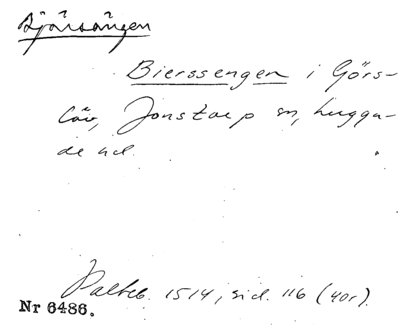 Bjärsången
Bierssengen i Görs-
löv, Jonstorp sn, Luggu-
de hd.
Palteb. 1514, sid. 116 (40r).
Nr 6486.